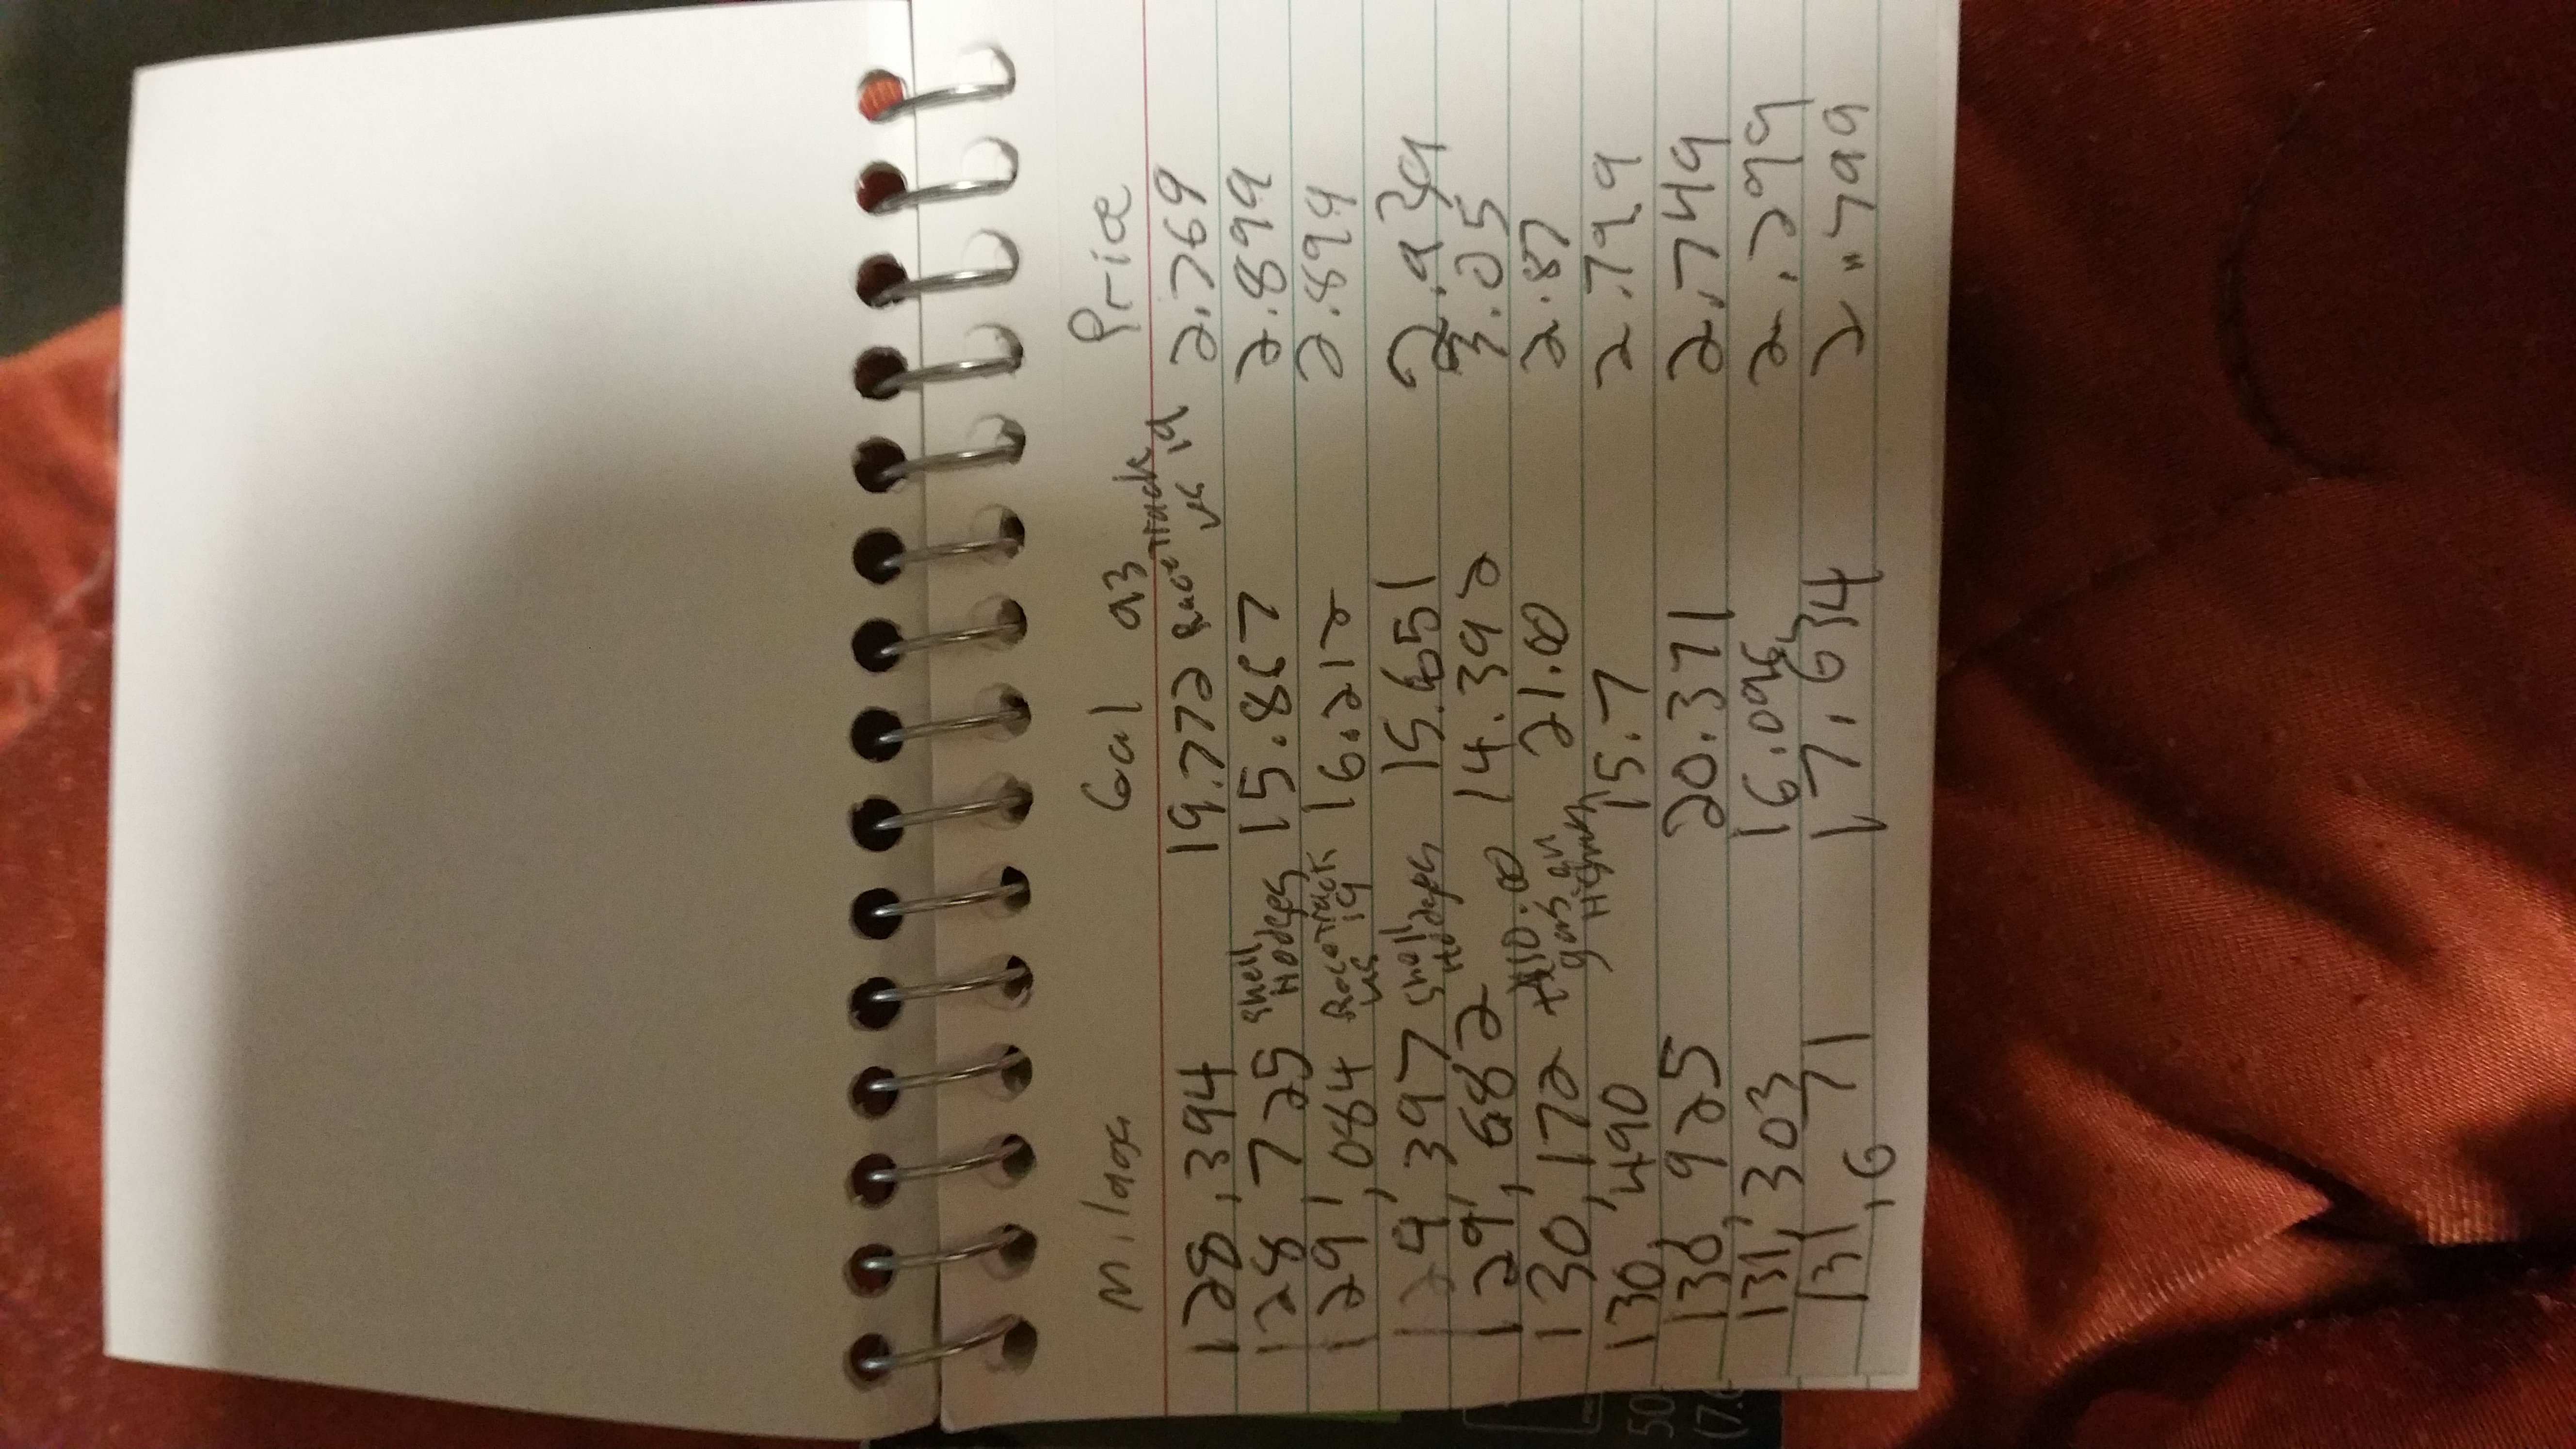 Milage Gal 93 Price
128,394 19.772 Racetrack us 19 2.769
128 725 Shell Hodges 15.867 2.899
129,084 Racetrack us 19 16.212 2.899
129,397 Shell Hodges 15.651 2.939
129,682 14.392 3.05
130,172 10.00 gas on Highway 21.00 2.87
130,490 15.7 2.799
130,925 20.371 2.749
131,303 16.095 2.799
131,671 17.634 2.799
50
(7.